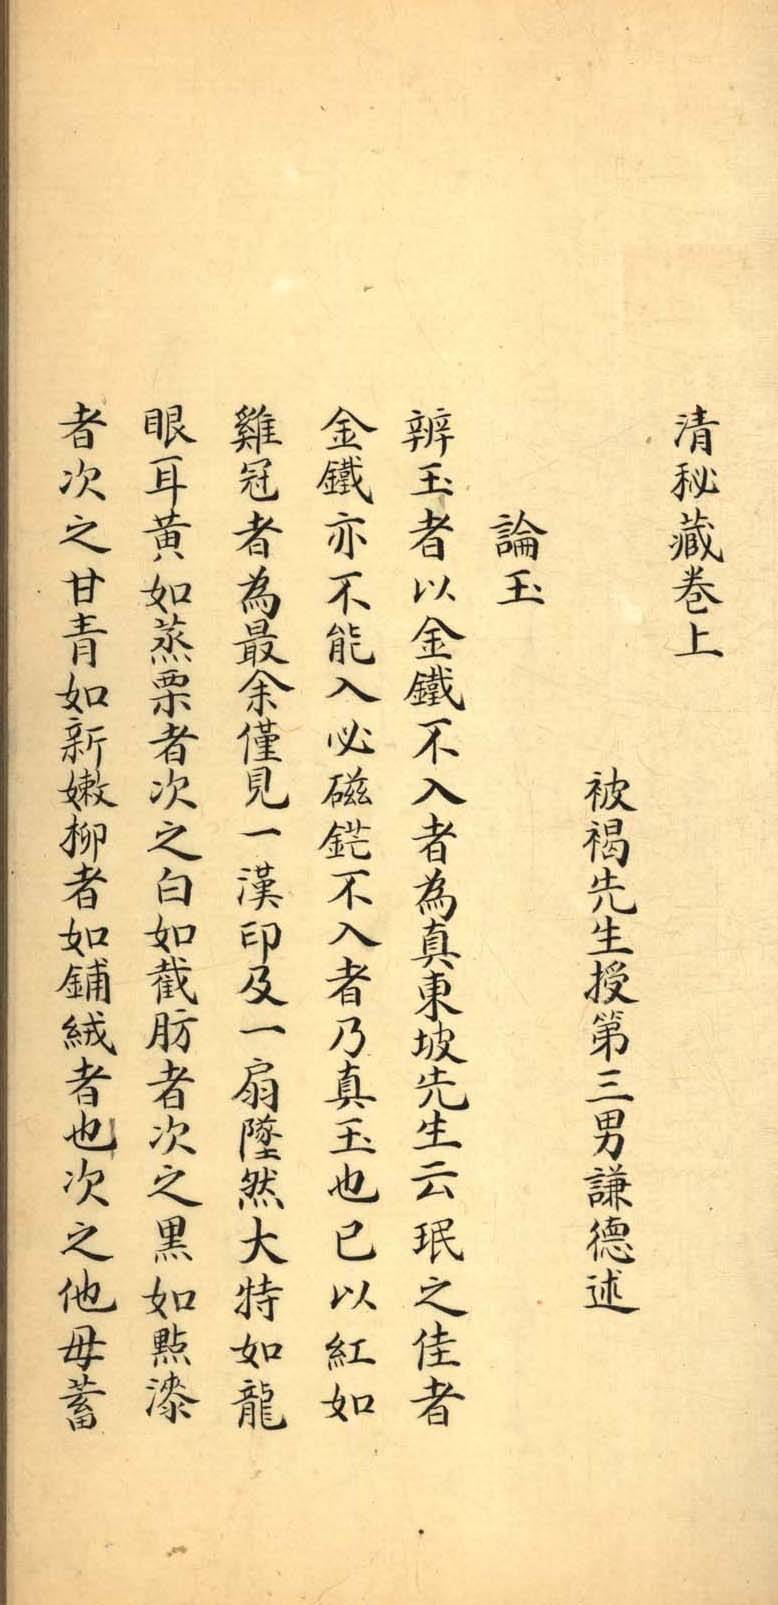 清秘藏卷上
被褐先生授第三男謙德述
論玉
辨玉者以金鐵不入者為真東坡先生云珉之佳者
金鐵亦不能入必磁鋩不入者乃真玉也已以紅如
雞冠者為最余僅見一漢印及一扇墜然大特如龍
眼耳黃如蒸栗者次之白如截肪者次之黑如點漆
者次之甘青如新嫩柳者如鋪絨者也次之他毋蓄